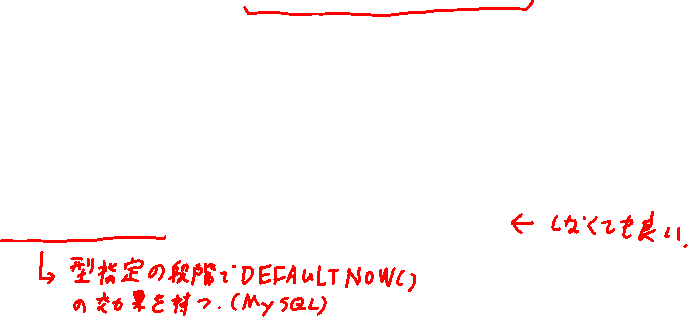 ← しなくても良い.
↳ 型指定の段階で DEFAULT NOW()
の効果を持つ. (MySQL)